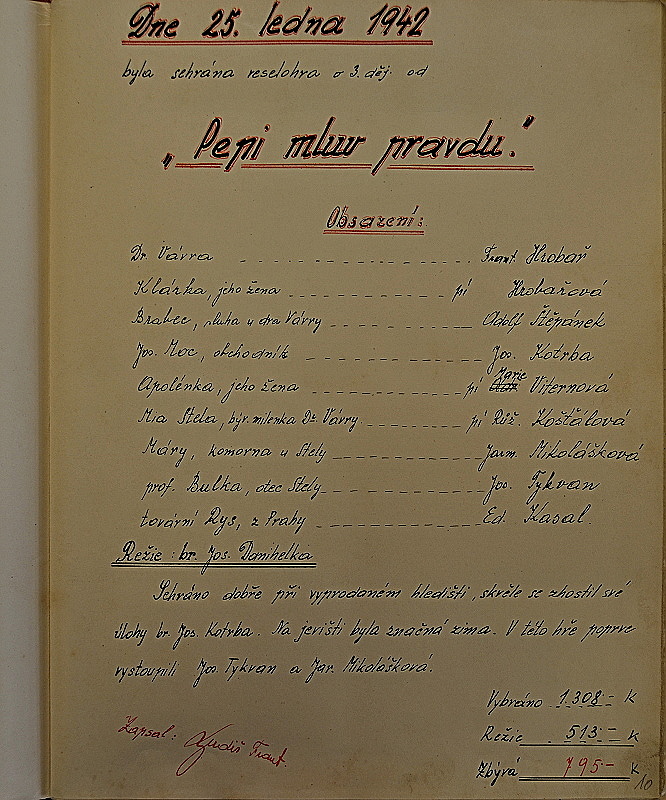 Dne 25. ledna 1942
byla sehrána veselohra o 3. děj. od
„Pepi mluv pravdu."
Obsazení:
Dr. Vávra ................ Frant. Hrobař
Klárka, jeho žena ................ pí Hrobařová
Brabec, sluha u dra Vávry ................ Adolf Štěpánek
Jos. Moc, obchodník ................ Jos. Kotrba
Apolénka, jeho žena ................ pí Marie Viternová
Mia Stela, býv. milenka Dr. Vávry ................ pí Růž. Košťálová
Máry, komorna u Stely ................ Jarm. Mikolášková
prof. Bulka, otec Stely ................ Jos. Tykvan
tovární Rys, z Prahy ................ Ed. Kasal.
Režie: br. Jos. Danihelka
Sehráno dobře při vyprodaném hledišti, skvěle se zhostil své
úlohy br. Jos. Kotrba. Na jevišti byla značná zima. V této hře poprvé
vystoupili Jos. Tykvan a Jar. Mikolášková.
Vybráno 1.308·- K
Režie 513·- K
Zbývá 795·- K
Zapsal: Frant.
10